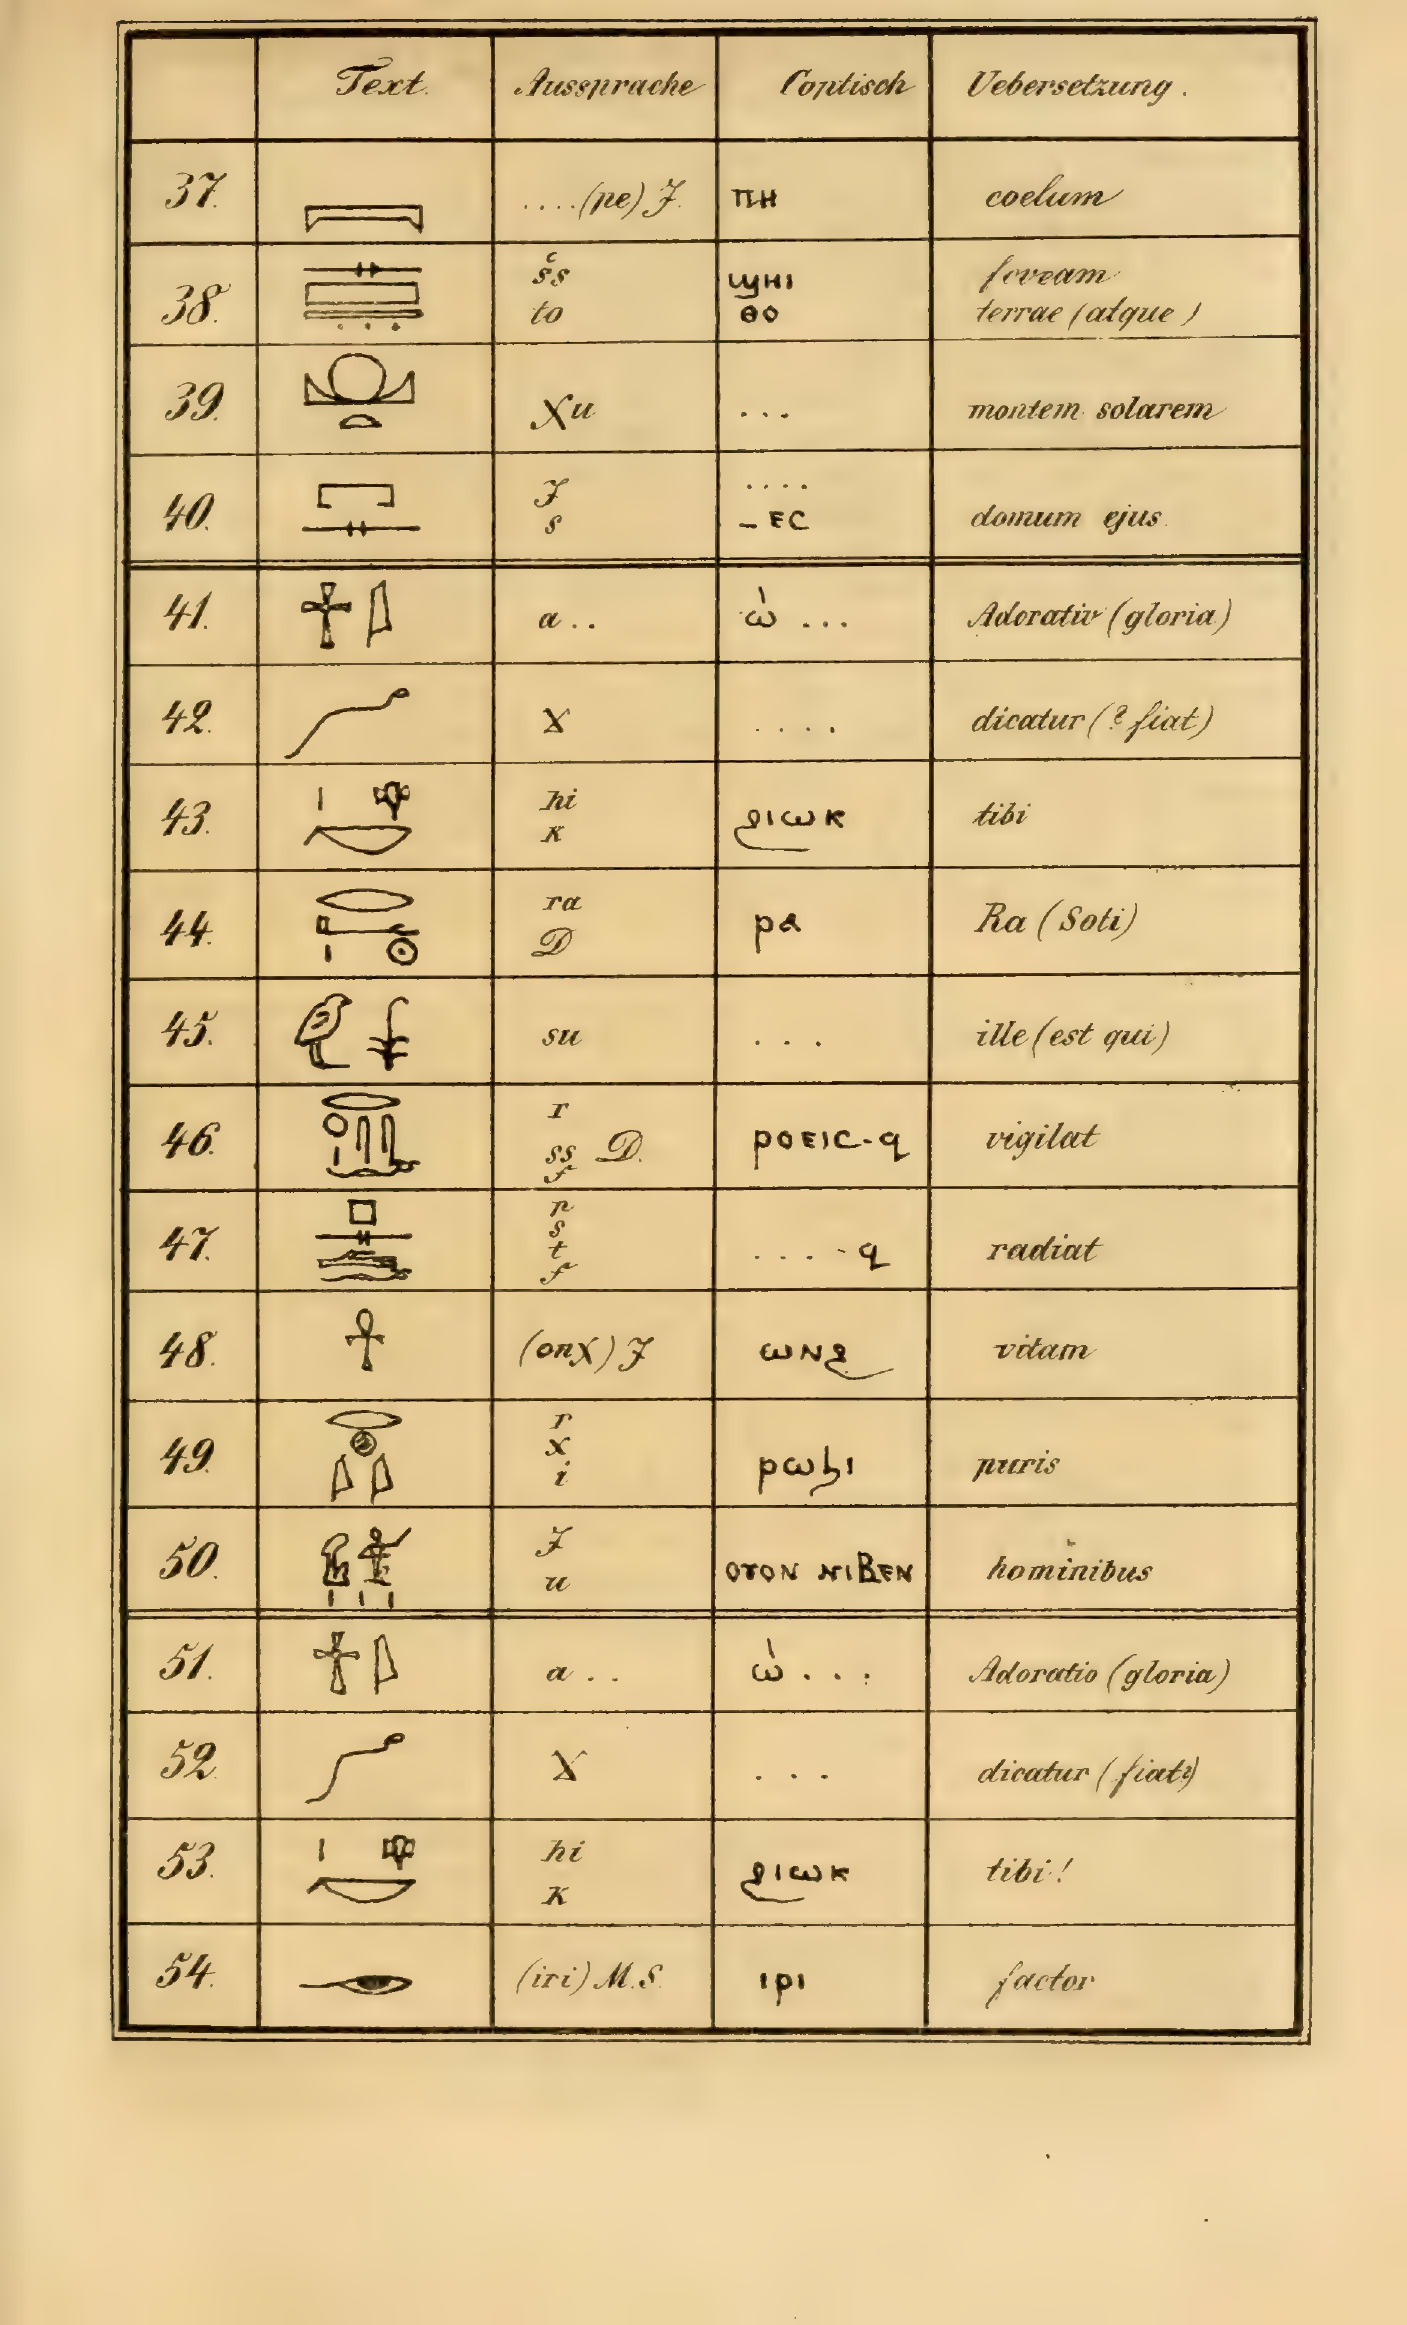 Text. Aussprache Coptisch Uebersetzung.
37. 𓇯 ....(pe) J. ⲡⲏ coelum
38. šs ϣⲏⲓ foveam
to ⲑⲟ terrae (atque)
39. Xu ... montem solarem
40. J ....
s – ⲉⲥ domum ejus
41. a .. ⲱ̀ ... Adoratio (gloria)
42. X .... dicatur (? fiat)
43. hi
k ϩⲓⲱⲕ tibi
44. ra
D ⲣⲁ Ra (Soti)
45. su ... ille (est qui)
46. r
ss D.
f ⲣⲟⲉⲓⲥ-ϥ vigilat
47. p
s
t
f .... -ϥ radiat
48. 𓋹 (onχ) J ⲱⲛϩ vitam
49. r
x
i ⲣⲱϧⲓ puris
50. J
u ⲟⲩⲟⲛ ⲛⲓⲃⲉⲛ hominibus
51. a .. ⲱ̀ ... Adoratio (gloria)
52 X ... dicatur (fiat?)
53. hi
k ϩⲓⲱⲕ tibi!
54. 𓁹 (iri) M.S. ⲓⲣⲓ factor